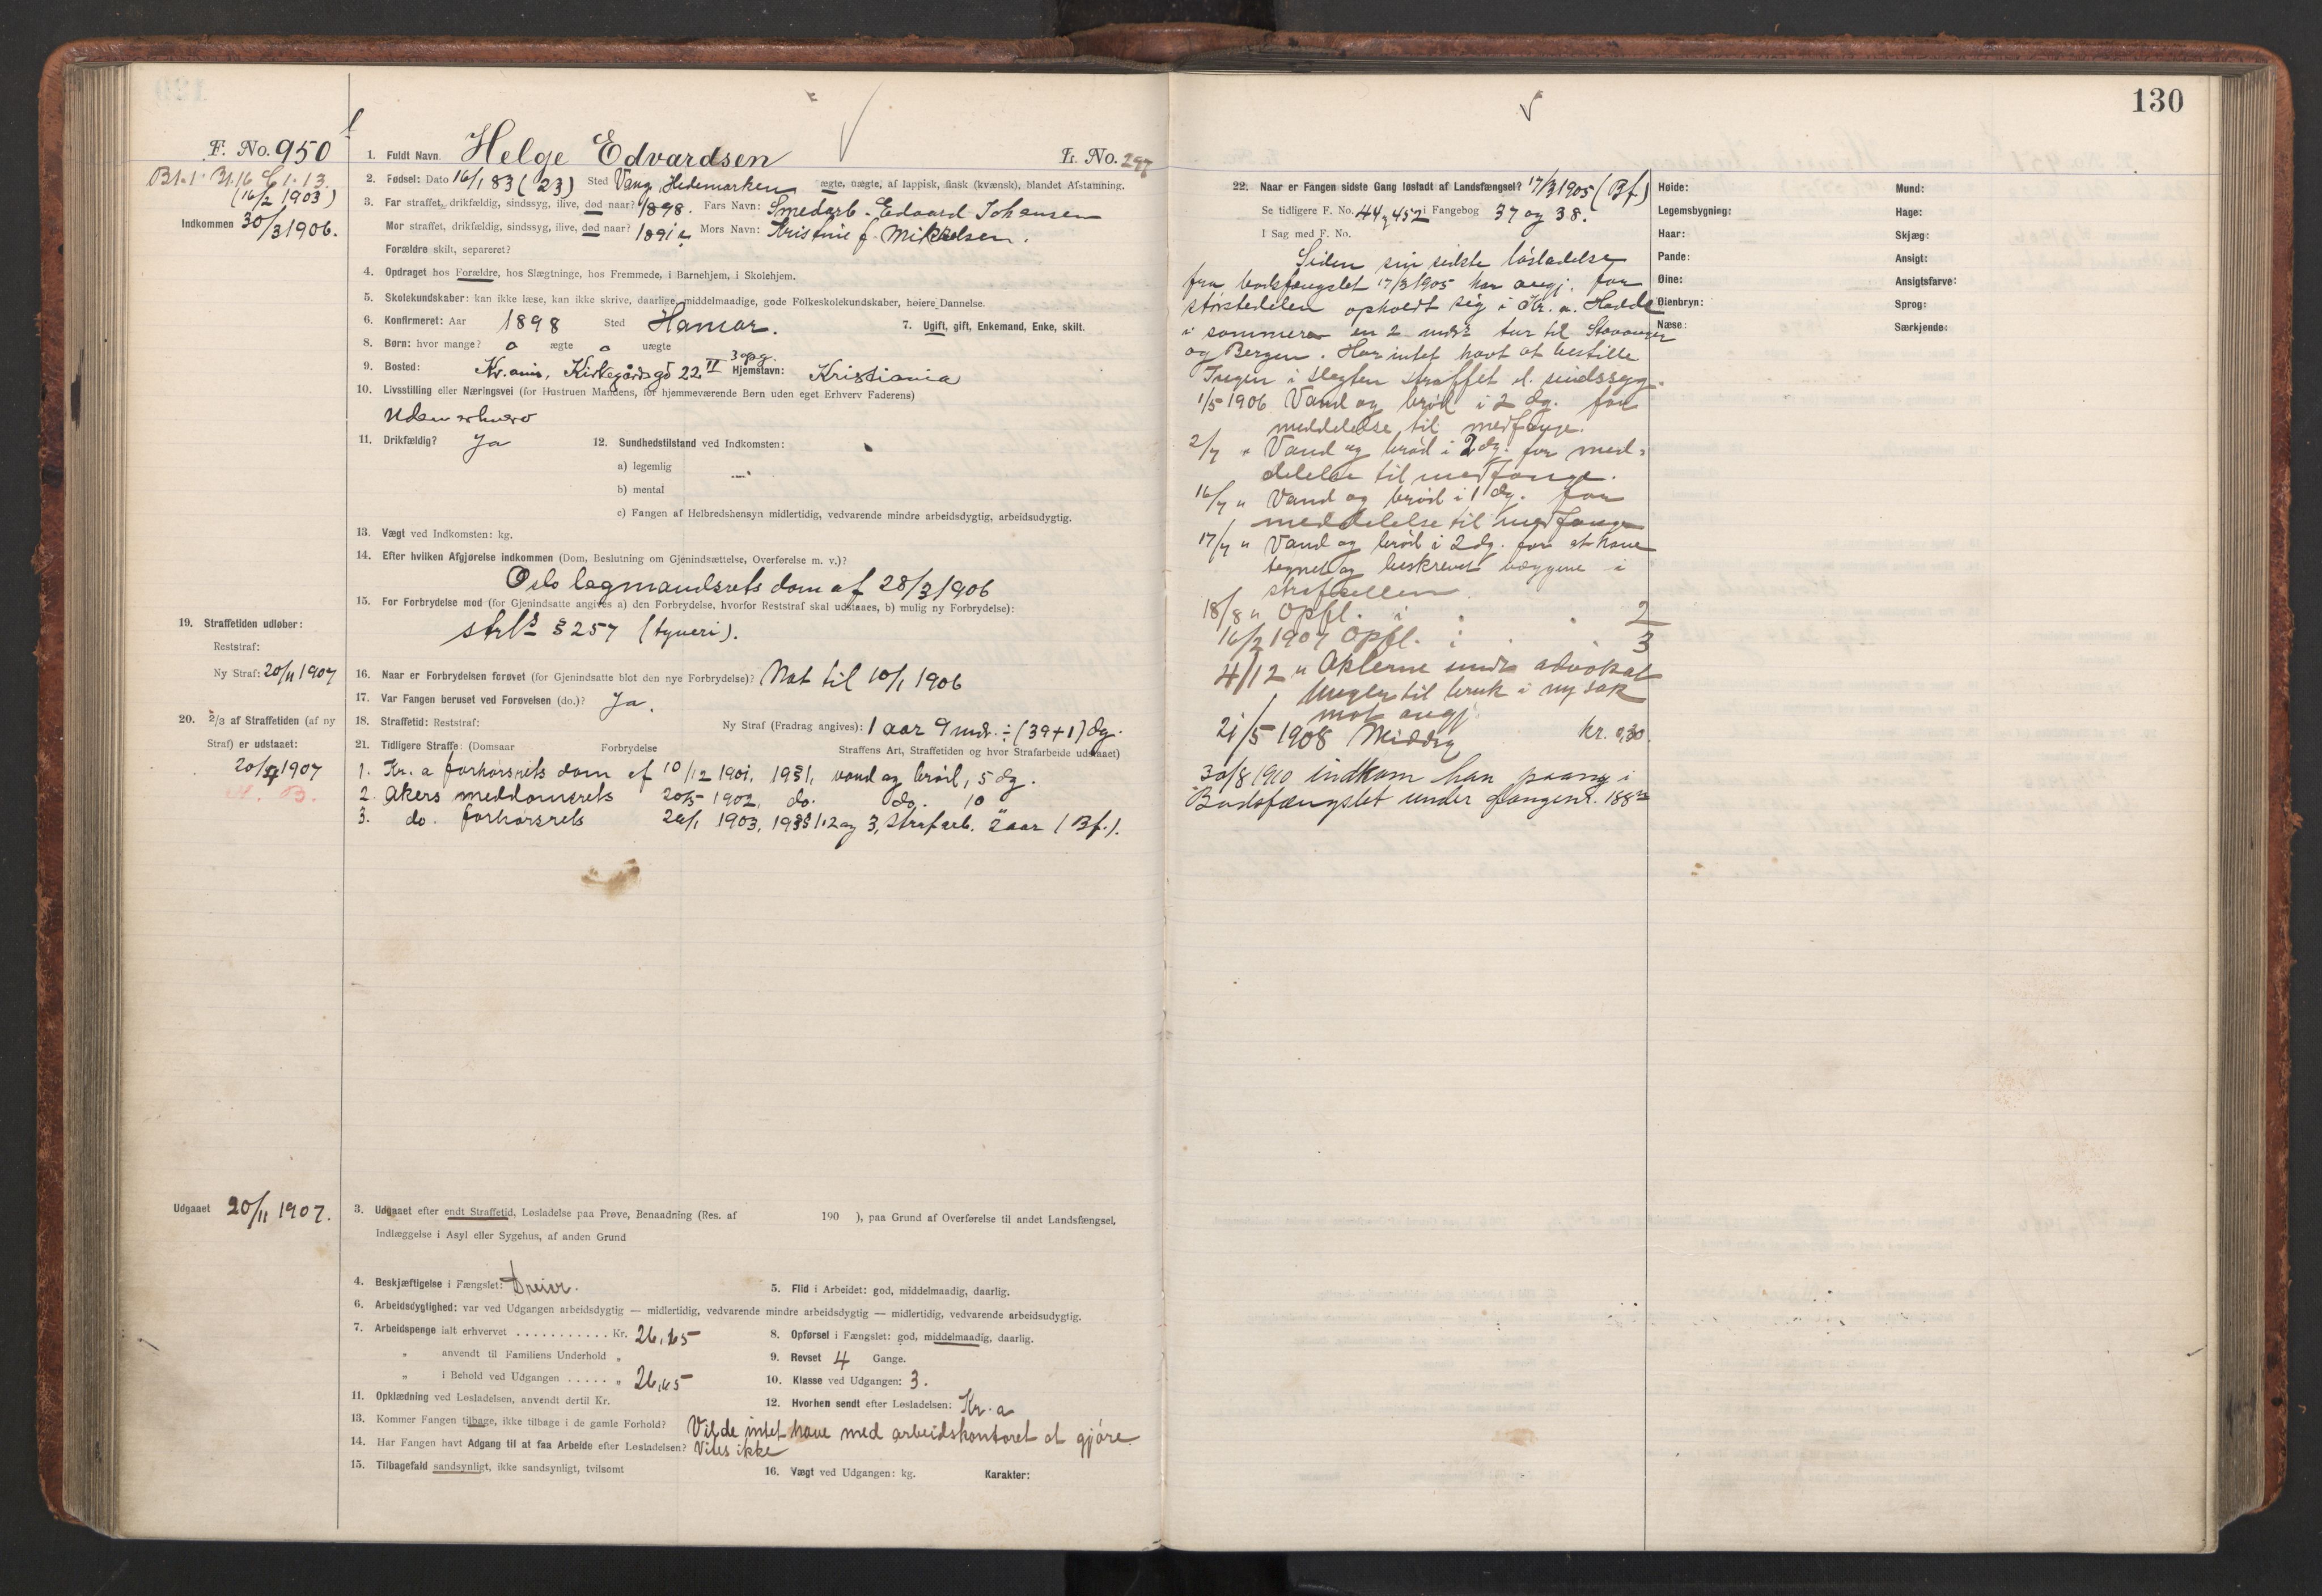 130
F. No. 950
B1.1. B1.16 C1.13.
(16/2 1903)
Indkommen 30/3 1906.
1. Fuldt Navn. Helge Edvardsen
L. No. 297
2. Fødsel: Dato 16/1 83 (23) Sted Vang, Hedemarken ægte, uægte, af lappisk, finsk (kvænsk), blandet Afstamning.
3. Far straffet, drikfældig, sindssyg, ilive, død naar? 1898. Fars Navn: Smedarb. Edvard Johansen
Mor straffet, drikfældig, sindssyg, ilive, død naar? 1891 Mors Navn: Kristine f. Mikkelsen.
Forældre skilt, separeret?
4. Opdraget hos Forældre, hos Slægtninge, hos Fremmede, i Barnehjem, i Skolehjem.
5. Skolekundskaber: kan ikke læse, kan ikke skrive, daarlige, middelmaadige, gode Folkeskolekundskaber, høiere Dannelse.
6. Konfirmeret: Aar 1898 Sted Hamar.
7. Ugift, gift, Enkemand, Enke, skilt.
8. Børn: hvor mange? o ægte o uægte
9. Bosted: Kr.ania, Kirkegårdsgd 22 II 3 opg. Hjemstavn: Kristiania
10. Livsstilling eller Næringsvei (for Hustruen Mandens, for hjemmeværende Børn uden eget Erhverv Faderens)
Uden erhverv
11. Drikfældig? Ja
12. Sundhedstilstand ved Indkomsten:
a) legemlig
b) mental
c) Fangen af Helbredshensyn midlertidig, vedvarende mindre arbeidsdygtig, arbeidsudygtig.
13. Vægt ved Indkomsten: kg.
14. Efter hvilken Afgjørelse indkommen (Dom, Beslutning om Gjenindsættelse, Overførelse m. v.)?
Oslo lagmandsrets dom af 28/3 1906
15. For Forbrydelse mod (for Gjenindsatte angives a) den Forbrydelse, hvorfor Reststraf skal udstaaes, b) mulig ny Forbrydelse):
strl's § 257 (tyveri).
19. Straffetiden udløber:
Reststraf:
Ny Straf: 20/11 1907
16. Naar er Forbrydelsen forøvet (for Gjenindsatte blot den nye Forbrydelse)? Nat til 10/1 1906
17. Var Fangen beruset ved Forøvelsen (do.)? Ja.
20. 2/3 af Straffetiden (af ny Straf) er udstaaet:
20/4 1907
H. B.
18. Straffetid: Reststraf: Ny Straf (Fradrag angives): 1 aar 9 mdr. ÷ (39+1) dg.
21. Tidligere Straffe: (Domsaar Forbrydelse Straffens Art, Straffetiden og hvor Strafarbeide udstaaet)
1. Kr.a forhørsrets dom af 10/12 1901, 19§1, vand og brød, 5 dg.
2. Akers meddomsrets 20/5 1902, do. do. 10
3. do. forhørsrets 20/1 1903, 19§§1,2 og 3, Strafarb. 2 aar (Bf.).
Udgaaet 20/11 1907.
3. Udgaaet efter endt Straffetid, Løsladelse paa Prøve, Benaadning (Res. af 190 ), paa Grund af Overførelse til andet Landsfængsel,
Indlæggelse i Asyl eller Sygehus, af anden Grund
4. Beskjæftigelse i Fængslet: Dreier.
5. Flid i Arbeidet: god, middelmaadig, daarlig.
6. Arbeidsdygtighed: var ved Udgangen arbeidsdygtig — midlertidig, vedvarende mindre arbeidsdygtig — midlertidig, vedvarende arbeidsudygtig.
7. Arbeidspenge ialt erhvervet . . . . . . . . . . . Kr. 26,65
8. Opførsel i Fængslet: god, middelmaadig, daarlig.
" anvendt til Familiens Underhold "
9. Revset 4 Gange.
" i Behold ved Udgangen . . . . . " 26,65
10. Klasse ved Udgangen: 3.
11. Opklædning ved Løsladelsen, anvendt dertil Kr.
12. Hvorhen sendt efter Løsladelsen: Kr.a
13. Kommer Fangen tilbage, ikke tilbage i de gamle Forhold? Vilde intet have med arbeidskontoret at gjøre.
14. Har Fangen havt Adgang til at faa Arbeide efter Løsladelsen? Vides ikke
15. Tilbagefald sandsynligt, ikke sandsynligt, tvilsomt
16. Vægt ved Udgangen: kg.
Karakter:
22. Naar er Fangen sidste Gang løsladt af Landsfængsel? 17/3 1905 (Bf)
Se tidligere F. No. 44 og 452 i Fangebog 37 og 38.
I Sag med F. No.
Siden sin sidste løsladelse
fra bodsfængslet 17/3 1905 har angj. for
størstedelen opholdt sig i Kr.a. Havde
i sommeren en 2 mdrs tur til Stavanger
og Bergen. Har intet havt at bestille
Ingen i slegten straffet el. sindssyg.
1/5 1906 Vand og brød i 2 dg. for
meddelelse til medfange.
2/7 " Vand og brød i 2 dg. for med-
delelse til medfange.
16/7 " Vand og brød i 1 dg. for
meddelelse til medfange
17/7 " Vand og brød i 2 dg. for at have
tegnet og beskrevet væggene i
strafcellen.
18/8 " Opfl. i . . 2
16/2 1907 Opfl. i . . 3
4/12 " Akterne sendt advokat
til bruk i ny sak
mot angj.
21/5 1908 Kr. 0,30.
30/8 1910 indkom han paany i
Bodsfængslet under fangenr. 188
Høide:
Legemsbygning:
Haar:
Pande:
Øine:
Øienbryn:
Næse:
Mund:
Hage:
Skjæg:
Ansigt:
Ansigtsfarve:
Sprog:
Særkjende: